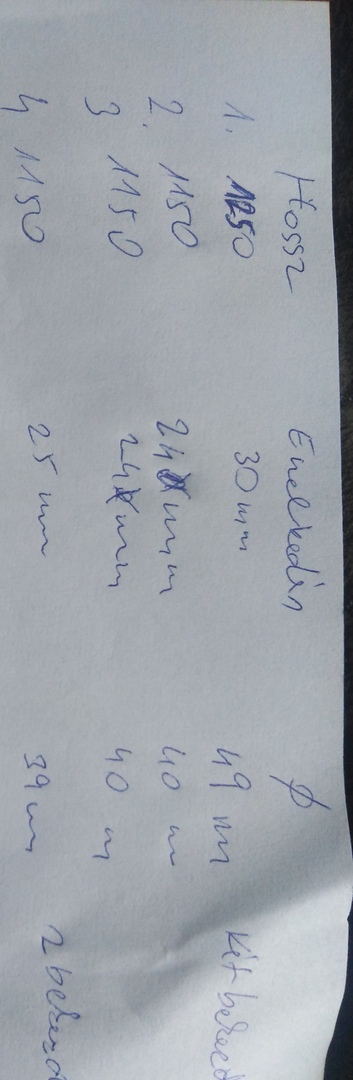 Hossz Emelkedés Ø
1. 1250 30 mm 49 m Két bekezd
2. 1150 24 mm 40 m
3 1150 24 mm 40 m
4 1150 25 mm 39 m 2 bekezd